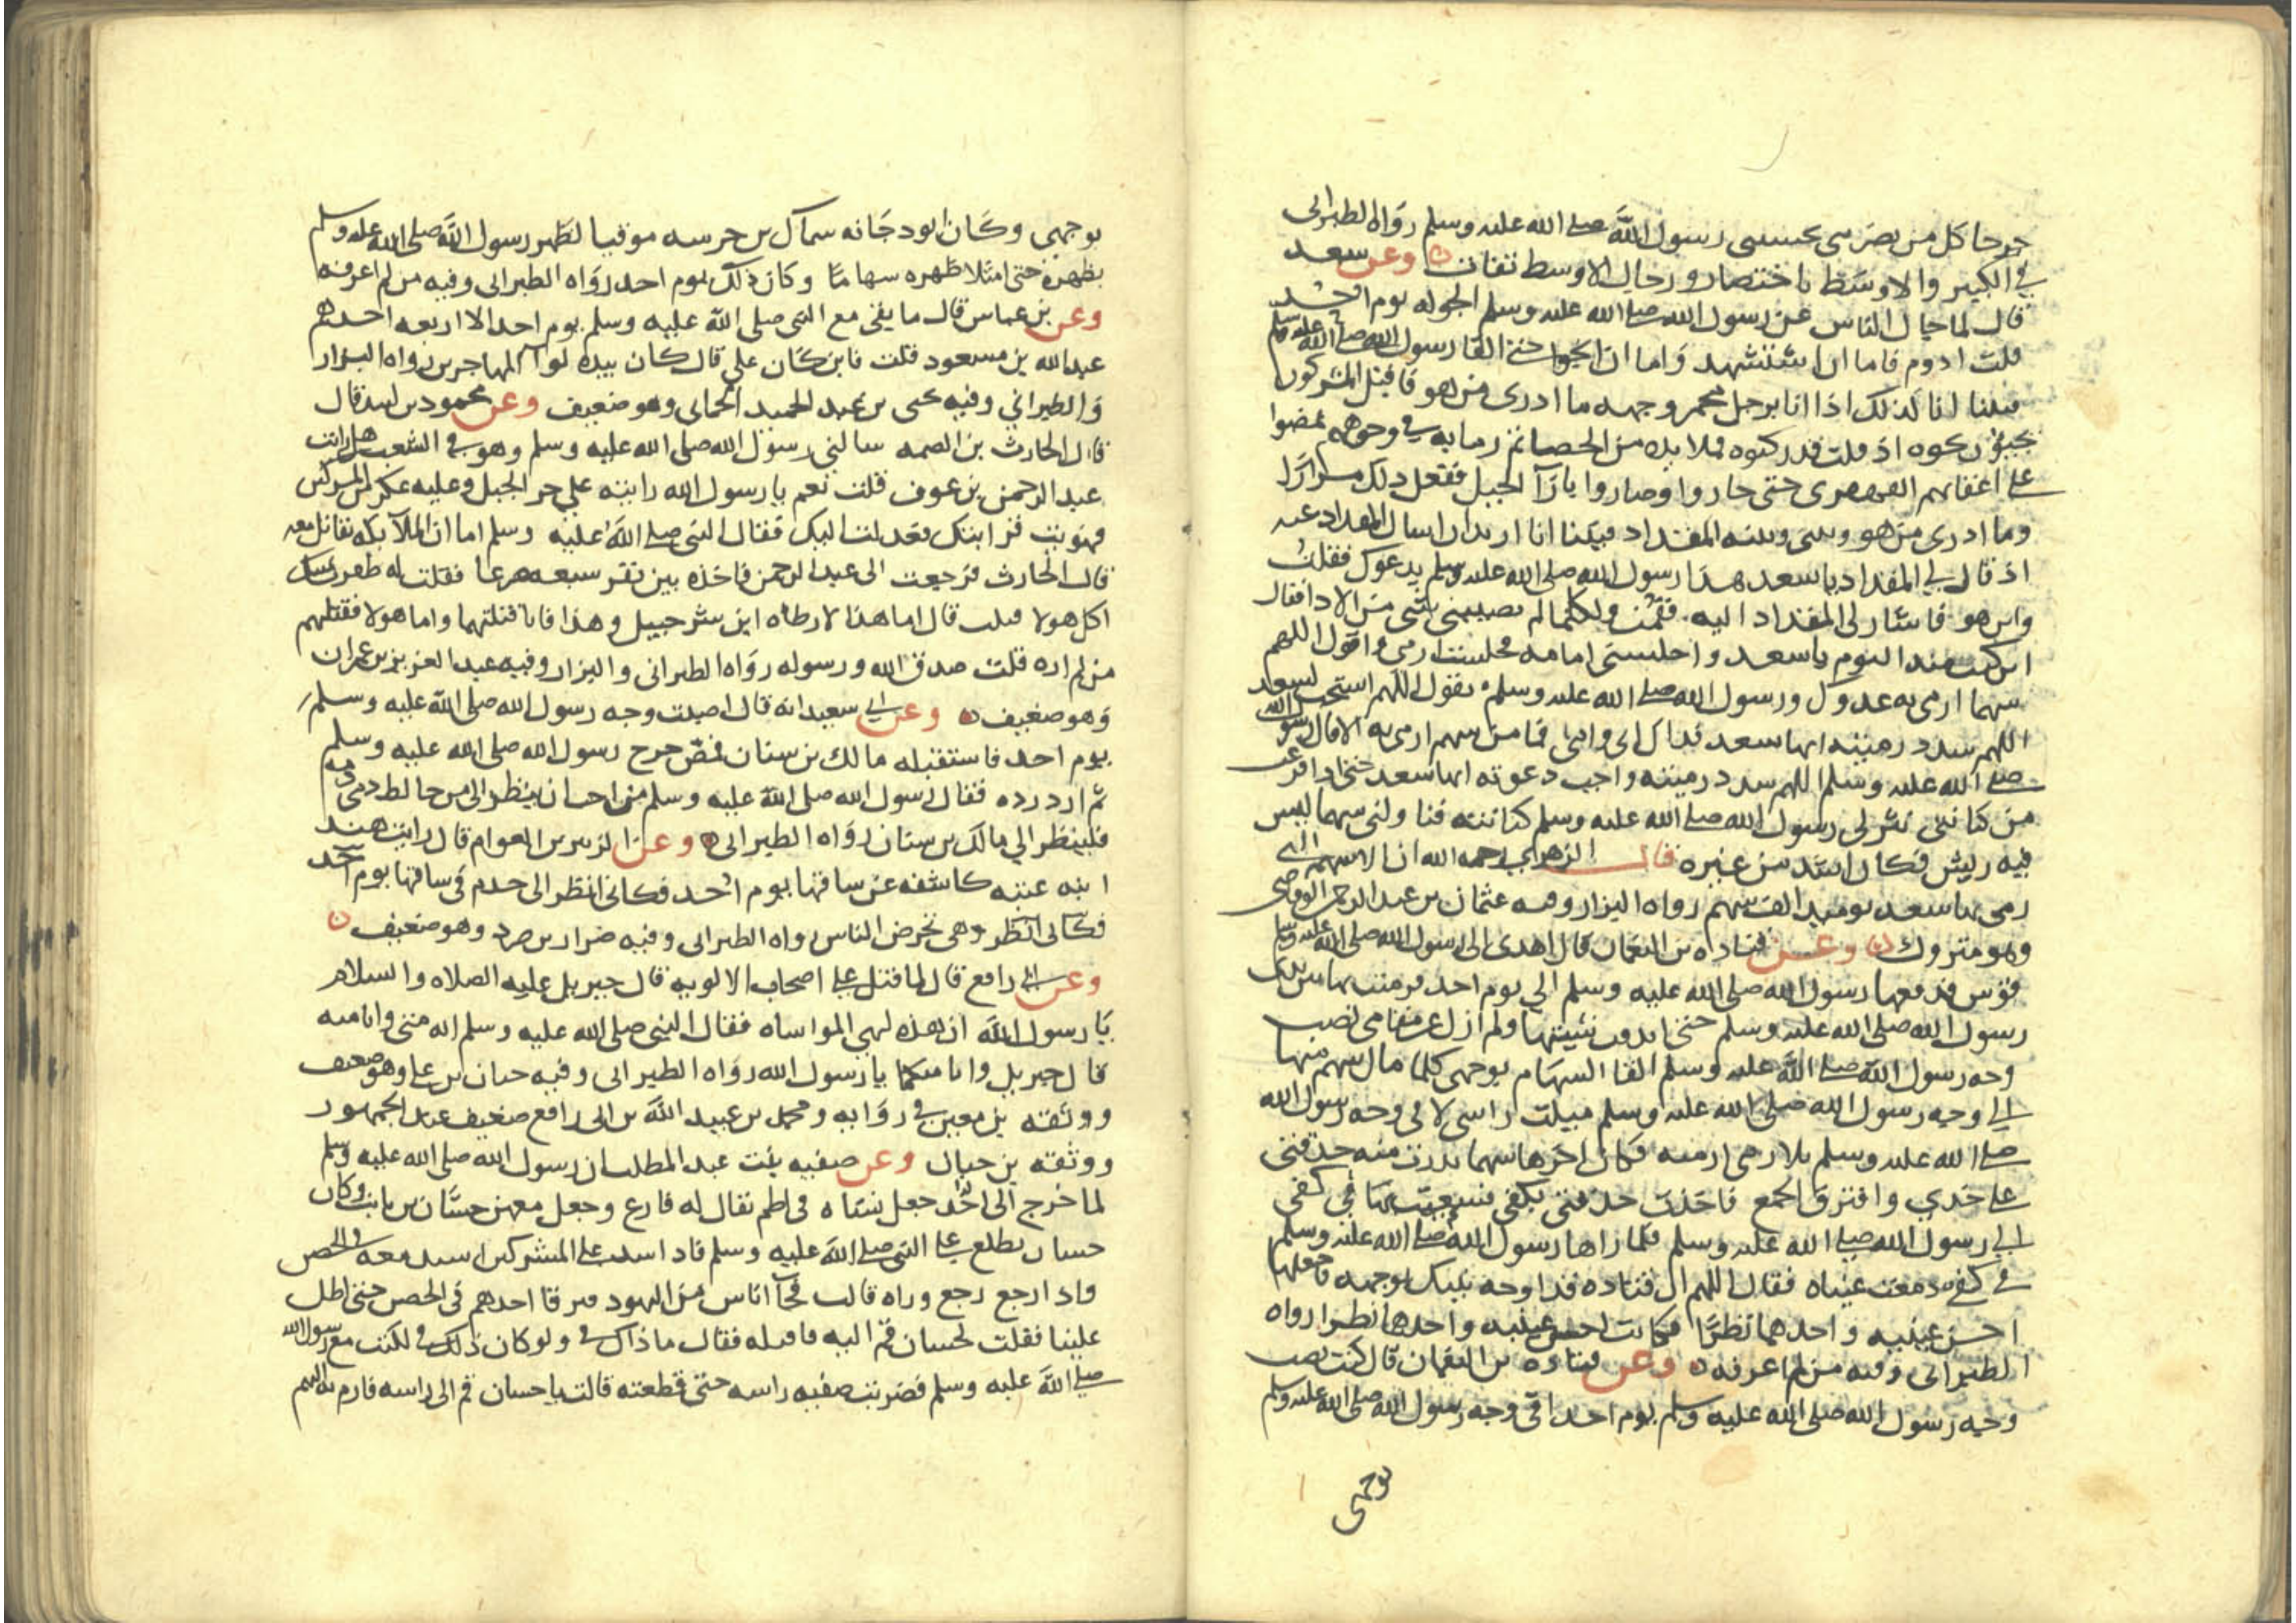 جرحا كل من بصر بي يحسبني رسول الله صلى الله عليه وسلم رواه الطبراني
في الكبير والاوسط باختصار ورجال الاوسط ثقات وعن سعد
قال لما جال الناس عن رسول الله صلى الله عليه وسلم الجوله يوم احد
قلت اذوم فاما ان استشهد واما ان انجوا حتى القا رسول الله صلى الله عليه وسلم
فبينا انا كذلك اذا انا برجل مخمر وجهه ما ادري من هو فاقبل المشركون
نحوه اذ قلت قد ركبوه فملا يده من الحصا ثم رما به في وجوههم فمضوا
على اعقابهم القهقرى حتى حاروا وصاروا بازآ الجبل ففعل ذلك مرارا
وما ادري من هو وبيني وبينه المقداد فبينا انا اريد ان اسال المقداد عنه
اذ قال لي المقداد يا سعد هذا رسول الله صلى الله عليه وسلم يدعوك فقلت
واين هو فاشار لي المقداد اليه فقمت ولكنما لم يصيبني شي من الاذا فقال
اين كنت منذ اليوم يا سعد واجلسني امامه فجلست ارمي واقول اللهم
سهما ارمي به عدوك ورسول الله صلى الله عليه وسلم يقول اللهم استجب لسعد
اللهم سدد رميته ايها سعد فداك ابي وامي فما من سهم ارمي به الا قال رسول الله
صلى الله عليه وسلم اللهم سدد رميته واجب دعوته ايها سعد حتى اذا فرغت
من كنانتي نثر لي رسول الله صلى الله عليه وسلم كنانته فناولني سهما ليس
فيه ريش فكان اشد من غيره قال الزهري رحمه الله ان الاسهم التي
رمى بها سعد يوميد الف سهم رواه البزار وفيه عثمان بن عبد الرحمن الوقاصي
وهو متروك وعن قتاده بن النعمان قال اهدى الى رسول الله صلى الله عليه وسلم
قوس فدفعها رسول الله صلى الله عليه وسلم الي يوم احد فرميت بها بين يدي
رسول الله صلى الله عليه وسلم حتى اندقت سيتها ولم ازل عن مقامي نصب
وجه رسول الله صلى الله عليه وسلم القا السهام بوجهي كلما مال سهم منها
الي وجه رسول الله صلى الله عليه وسلم ميلت راسي لاقي وجه رسول الله
صلى الله عليه وسلم بلا رمي ارميه فكان اخرها سهما ندرت منه حدقتي
على خدي وافترق الجمع فاخذت حدقتي بكفي فسعيت بها في كفي
الي رسول الله صلى الله عليه وسلم فلما راها رسول الله صلى الله عليه وسلم
في كفي دمعت عيناه فقال اللهم ان قتاده فدا وجه نبيك بوجهه فاجعلها
احسن عينيه واحدهما نظرا فكانت احسن عينيه واحدهما نظرا رواه
الطبراني وفيه من لم اعرفه وعن قتاده بن النعمان قال كنت نصب
وجه رسول الله صلى الله عليه وسلم يوم احد اقي وجه رسول الله صلى الله عليه وسلم
بوجهي
بوجهي وكان ابو دجانه سماك بن خرسه موقيا لظهر رسول الله صلى الله عليه وسلم
بظهره حتى امتلا ظهره سهاما وكان ذلك يوم احد رواه الطبراني وفيه من لم اعرفه
وعن بن عباس قال ما بقي مع النبي صلى الله عليه وسلم يوم احد الا اربعه احدهم
عبد الله بن مسعود قلت فاين كان علي قال كان بيده لوآ المهاجرين رواه البزار
والطبراني وفيه يحيى بن عبد الحميد الحماني وهو ضعيف وعن محمود بن لبيد قال
قال الحارث بن الصمه سالني رسول الله صلى الله عليه وسلم وهو في الشعب هل رايت
عبد الرحمن بن عوف قلت نعم يا رسول الله رايته على جر الجبل وعليه عكر من المشركين
فهويت فرايتك فعدلت اليك فقال النبي صلى الله عليه وسلم اما ان الملآيكه تقاتل معه
قال الحارث فرجعت الى عبد الرحمن فاجده بين نفر سبعه صرعا فقلت له ظفرت يمينك
اكل هولا قتلت قال اما هذا لارطاه ابن شرحبيل وهذا فانا قتلتهما واما هولا فقتلهم
من لم اره قلت صدق الله ورسوله رواه الطبراني والبزار وفيه عبد العزيز بن عمران
وهو ضعيف وعن ابي سعيد انه قال اصيب وجه رسول الله صلى الله عليه وسلم
يوم احد فاستقبله مالك بن سنان فمص جرح رسول الله صلى الله عليه وسلم
ثم ازدرده فقال رسول الله صلى الله عليه وسلم من احب ان ينظر الى من خالط دمي دمه
فلينظر الي مالك بن سنان رواه الطبراني وعن الزبير بن العوام قال رايت هند
ابنه عتبه كاشفه عن ساقها يوم احد فكاني انظر الى خدم في ساقها يوم احد
فكاني انظر وهي تحرض الناس رواه الطبراني وفيه ضرار بن صرد وهو ضعيف
وعن ابي رافع قال لما قتل علي اصحاب الالويه قال جبريل عليه الصلاه والسلام
يا رسول الله ان هذه لهي المواساه فقال النبي صلى الله عليه وسلم انه مني وانا منه
قال جبريل وانا منكما يا رسول الله رواه الطبراني وفيه حبان بن علي وهو ضعيف
ووثقه بن معين في روايه ومحمد بن عبيد الله بن ابي رافع ضعيف عند الجمهور
ووثقه بن حبان وعن صفيه بنت عبد المطلب ان رسول الله صلى الله عليه وسلم
لما خرج الى احد جعل نساه في اطم يقال له فارع وجعل معهن حسان بن ثابت وكان
حسان يطلع على النبي صلى الله عليه وسلم فاذا اشتد على المشركين اشتد معه في الحصن
واذا رجع رجع وراه قالت فجآ اناس من اليهود فرقا احدهم في الحصن حتى اطل
علينا فقلت لحسان قم اليه فاقتله فقال ما ذاك في ولو كان ذلك في لكنت مع رسول الله
صلى الله عليه وسلم فضربت صفيه راسه حتى قطعته قالت يا حسان قم الى راسه فارم به اليهم